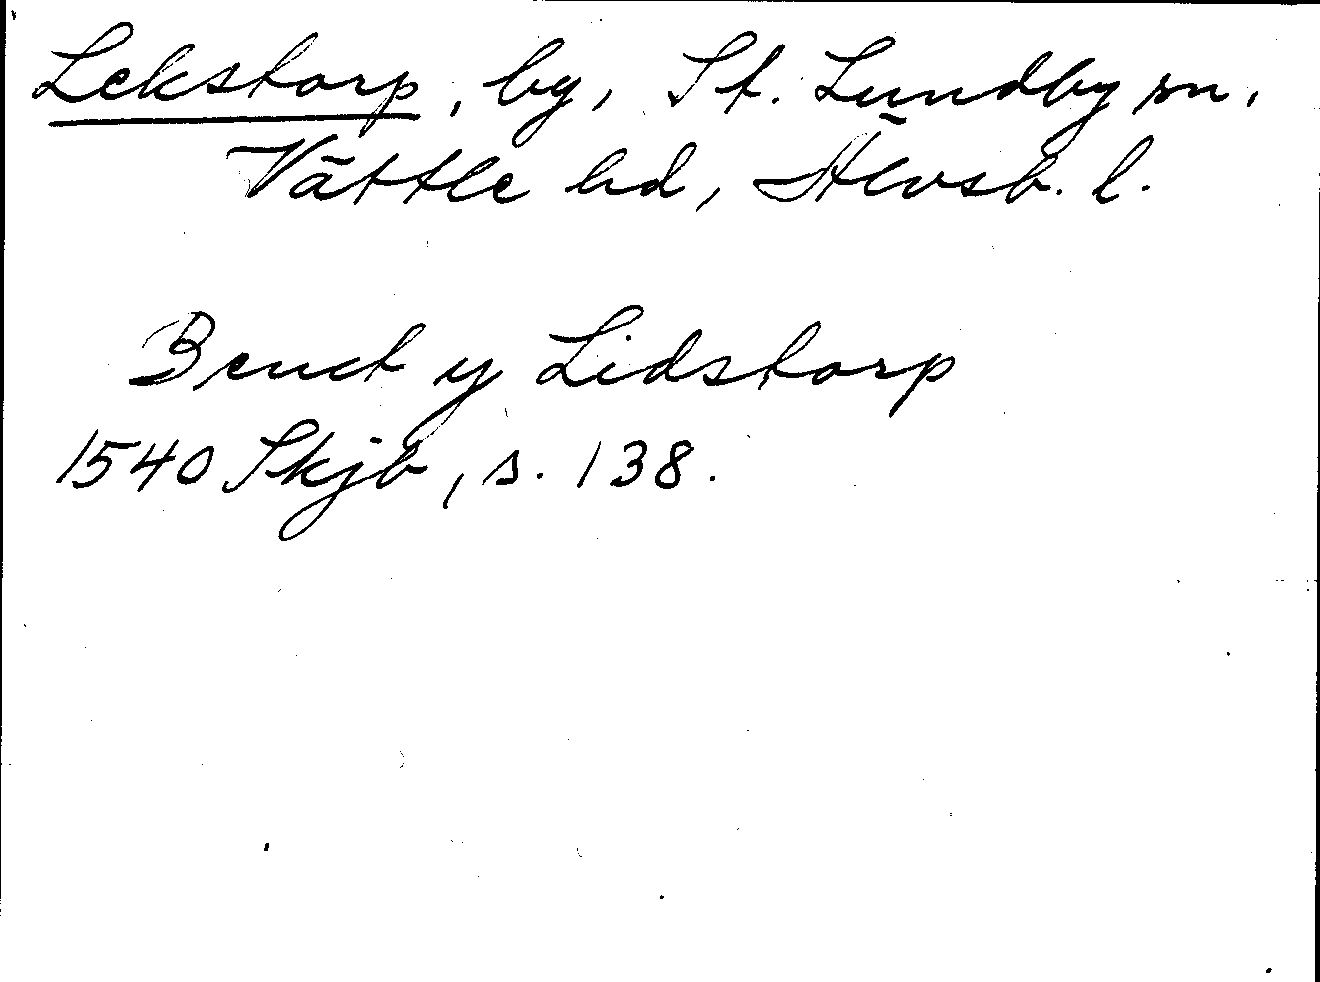 Lekstorp, by, St. Lundby sn,
Vättle hd, Älvsb. l.
Benct y Lidstorp
1540 Skjb, s. 138.